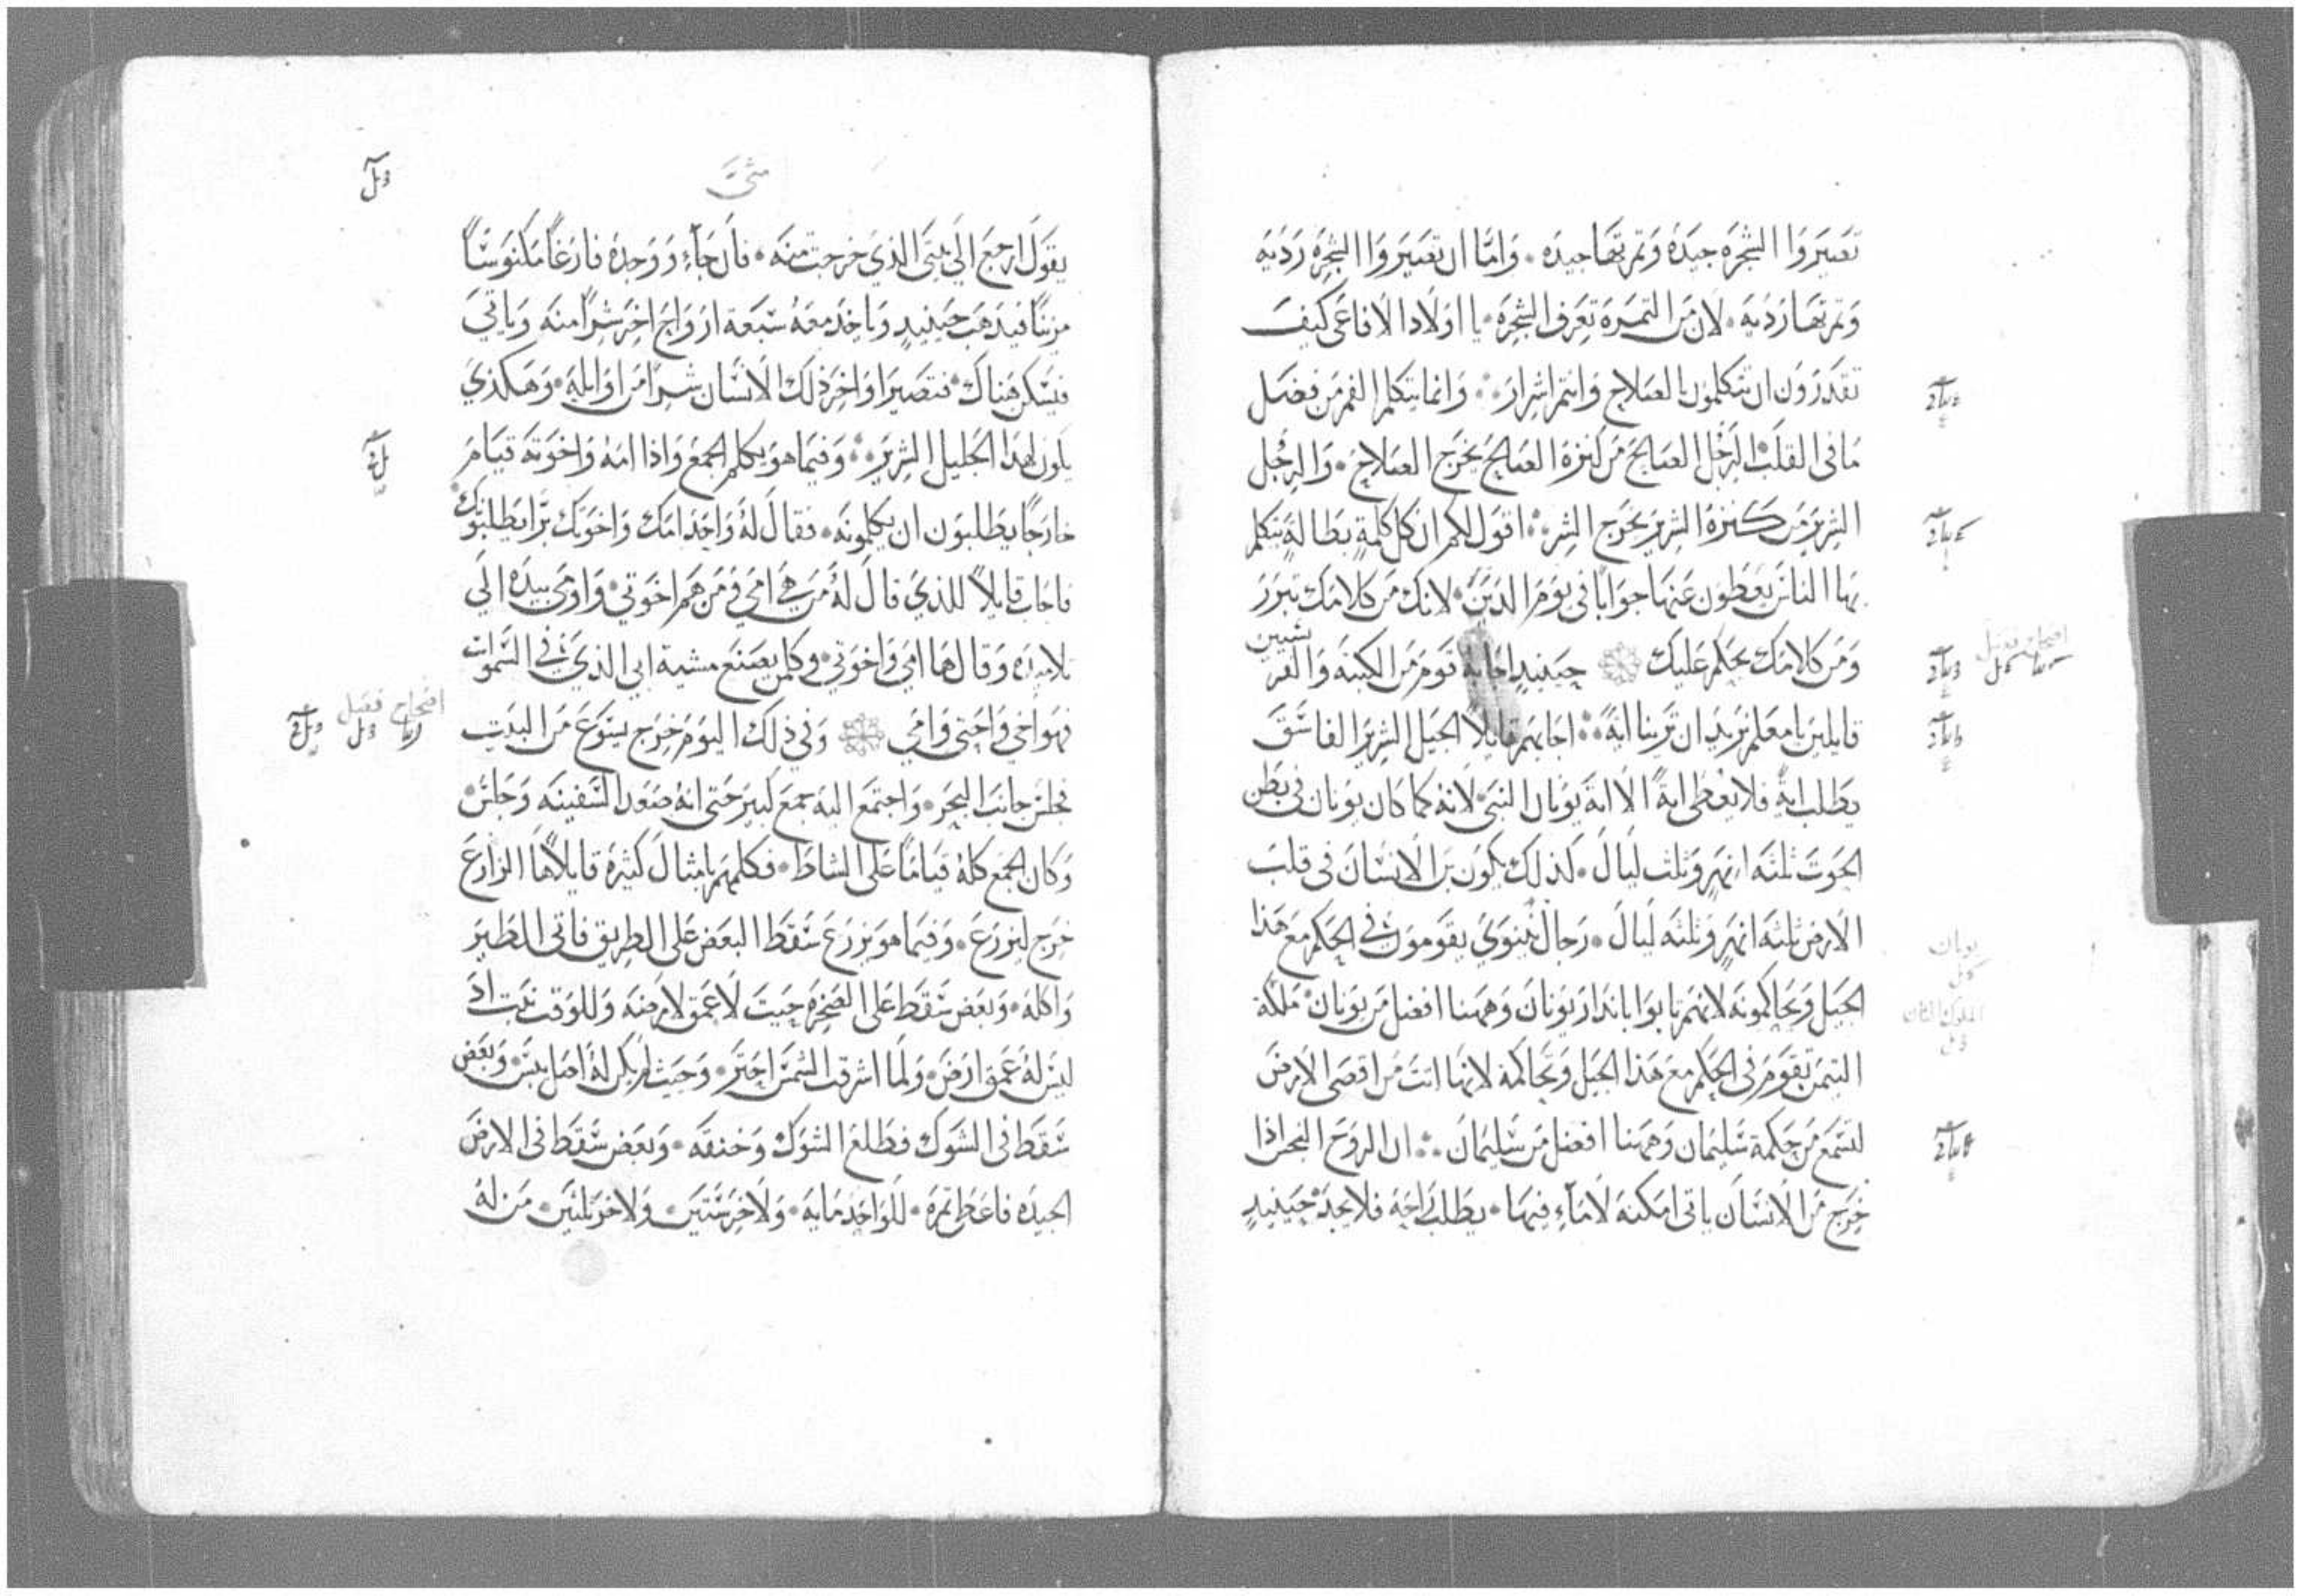 تصيروا الشجره جيده وثمرتها جيده. واما ان تصيروا الشجره رديه
وثمرتها رديه. لان من الثمره تعرف الشجره. يا اولاد الافاعي كيف
تقدرون ان تتكلمون بالصلاح وانتم اشرار. وانما يتكلم الفم من فضل
ما في القلب الرجل الصالح من كنزه الصالح يخرج الصلاح. والرجل
الشرير من كنزه الشرير يخرج الشر. اقول لكم ان كل كلمة بطالة يتكلم
بها الناس يعطون عنها جوابا في يوم الدين. لانك من كلامك تتبرر
ومن كلامك يحكم عليك حينيد اجابه قوم من الكتبه والفريسيين
قايلين يا معلم نريد ان ترينا اية. اجابهم قايلا الجيل الشرير الفاسق
يطلب اية فلا يعطى اية الا اية يونان النبي. لانه كما كان يونان في بطن
الحوت ثلثه انهر وثلث ليال. كذلك يكون بن الانسان في قلب
الارض ثلثه انهر وثلثه ليال. رجال نينوى يقومون في الحكم مع هذا
الجيل ويحاكمونه لانهم تابوا بانذار يونان وههنا افضل من يونان. ملكة
التيمن تقوم في الحكم مع هذا الجيل وتحاكمه لانها اتت من اقصى الارض
لتسمع من حكمة سليمان وههنا افضل من سليمان. ان الروح النجس اذا
خرج من الانسان ياتى امكنه لا ماء فيها. يطلب راحة فلا يجد حينيد
متى
يقول ارجع الى بيتي الذي خرجت منه. فان جاء ووجده فارغا مكنوسا
مزينا فيذهب حينيد وياخذ معه سبعة ارواح اخر شرا منه وياتي
فيسكن هناك. فتصير اواخر ذلك الانسان شرا من اوايله. وهكذي
يكون لهذا الجيل الشرير. وفيما هو يكلم الجمع واذا امه واخوته قيام
خارجا يطلبون ان يكلمونه. فقال له واحد امك واخوتك برا يطلبوك
فاجاب قايلا للذي قال له من هي امي ومن هم اخوتي. واومى بيده الي
تلاميذه وقال ها امي واخوتي. وكل من يصنع مشية ابي الذي في السموات
فهو اخي واختي وامي وفي ذلك اليوم خرج يسوع من البيت
فجلس جانب البحر. واجتمع اليه جمع كبير حتى انه صعد السفينه وجلس.
وكان الجمع كله قياما على الشاط. فكلمهم بامثال كثيرة قايلا ها الزارع
خرج ليزرع. وفيما هو يزرع سقط البعض على الطريق فاتى الطير
واكله. وبعض سقط على الصخره حيث لا عمق لارضه وللوقت نبت اذ
ليس له عمق ارض. ولما اشرقت الشمس احتر. وحيث لم يكن له اصل يبس. وبعض
سقط في الشوك فطلع الشوك وخنقه. وبعض سقط في الارض
الجيده فاعطى ثمره. للواحد مايه. ولاخر ستين. ولاخر ثلثين. من له
افتحاح فصل